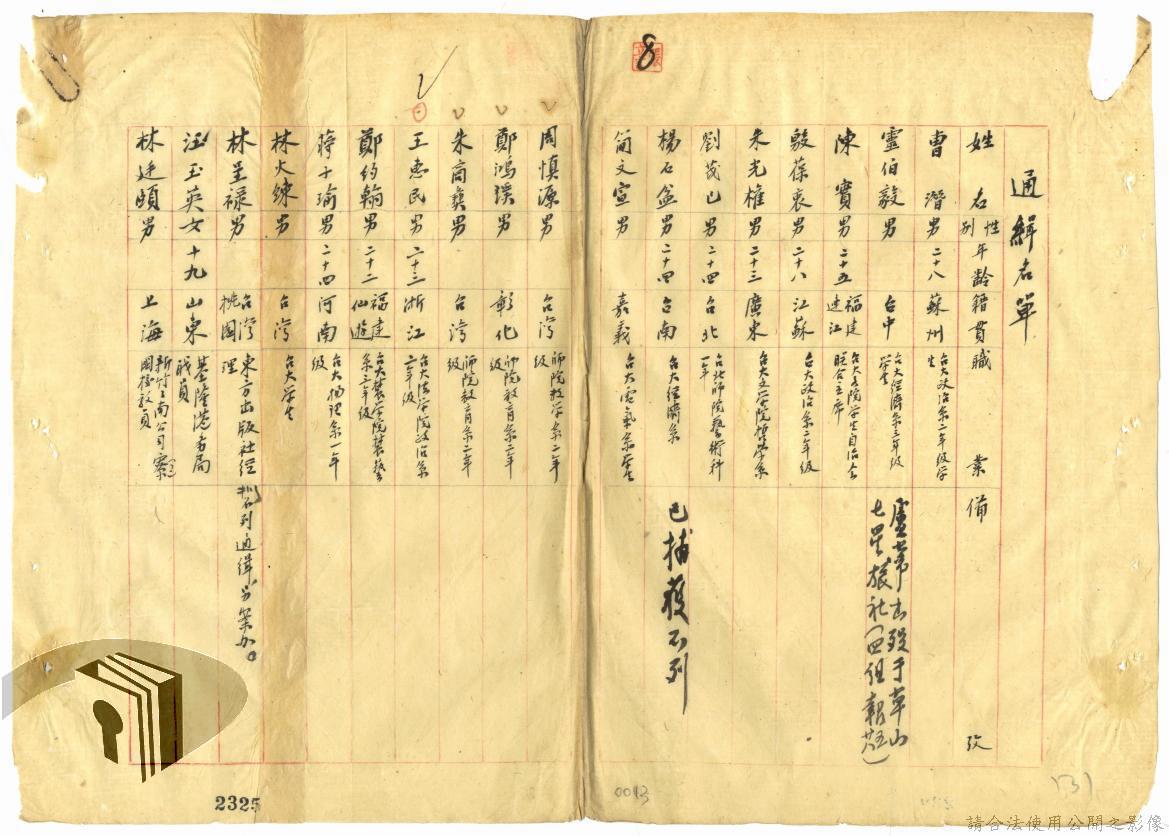 8
通緝名單
姓名 性別 年齡 籍貫 職業 備攷
曹潛 男 二十八 蘇州 台大政治系二年級学生
霊伯毅 男 台中 台大經濟系三年級学生
陳實 男 二十五 福建連江 台大文院学生自治会聯合主席
殷葆衷 男 二十八 江蘇 台大政治系二年級
朱光權 男 二十三 廣東 台大文学院哲学系
劉茂己 男 二十四 台北 台北師院藝術科一年
楊石盆 男 二十四 台南 台大經濟系 已捕獲不列
簡文宣 男 嘉義 台大電氣系学生
周慎源 男 台湾 師院数学系二年級
鄭鴻溪 男 彰化 師院教育系二年級
朱商彝 男 台湾 師院教育系二年級
王惠民 男 二十三 浙江 台大法学院政治系二年級
鄭約翰 男 二十二 福建仙遊 台大農学院農藝系三年級
蔣子瑜 男 二十四 河南 台大物理系一年級
林火煉 男 台湾 台大学生
林呈禄 男 台湾桃園 東方出版社經理 不列通緝另案办。
汪玉英 女 十九 山東 基隆港务局職員
林廷頤 男 上海 新竹工商公司
2325
0043
請合法使用公開之影像